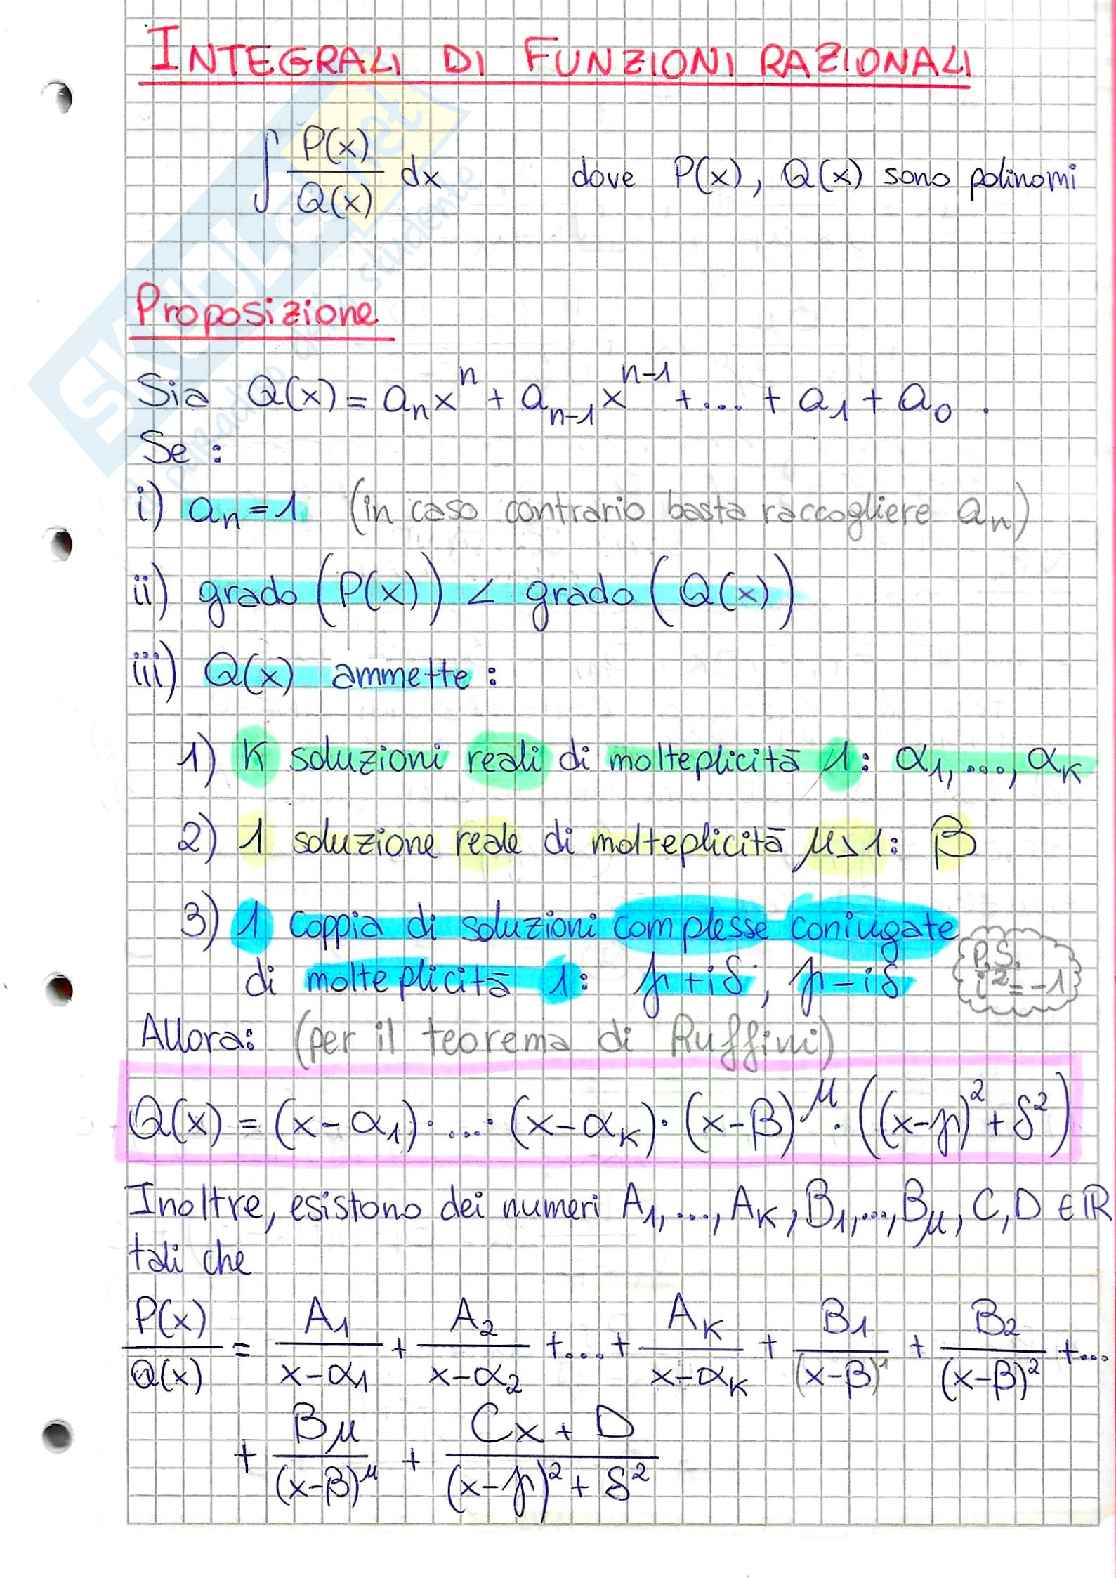 INTEGRALI DI FUNZIONI RAZIONALI
∫ P(x)/Q(x) dx dove P(x), Q(x) sono polinomi
Proposizione
Sia Q(x) = aₙxⁿ + aₙ₋₁xⁿ⁻¹ + .... + a₁ + a₀ .
Se :
i) aₙ = 1 (in caso contrario basta raccogliere aₙ)
ii) grado (P(x)) < grado (Q(x))
iii) Q(x) ammette :
1) K soluzioni reali di molteplicità 1: α₁, ..., αₖ
2) 1 soluzione reale di molteplicità μ>1: β
3) 1 coppia di soluzioni complesse coniugate
di molteplicità 1: γ+iδ, γ-iδ
P.S.
i² = -1
Allora: (per il teorema di Ruffini)
Q(x) = (x-α₁)·....·(x-αₖ)·(x-β)^μ·((x-γ)²+δ²)
Inoltre, esistono dei numeri A₁, ..., Aₖ, B₁, ..., B_μ, C, D ∈ ℝ
tali che
P(x)/Q(x) = A₁/(x-α₁) + A₂/(x-α₂) + .... + Aₖ/(x-αₖ) + B₁/(x-β)¹ + B₂/(x-β)² + ...
+ B_μ/(x-β)^μ + (Cx + D)/((x-γ)² + δ²)
SKUOLA.net